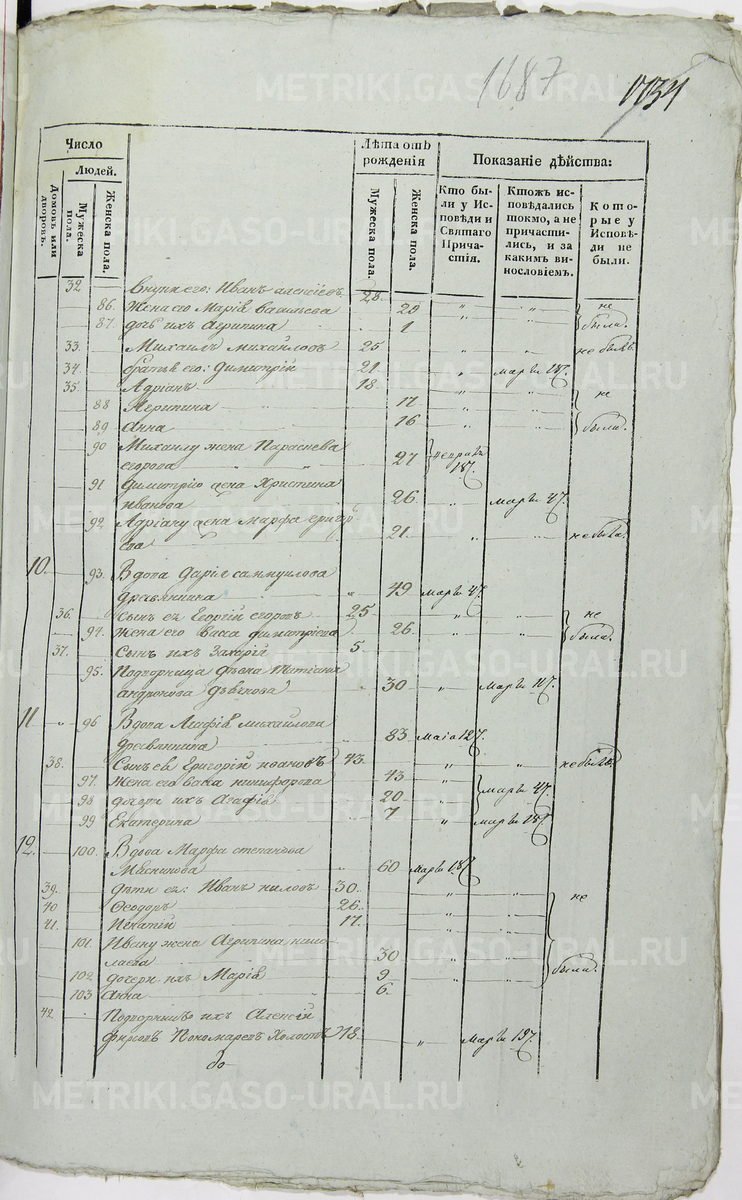 1687
1134
Число
Людей.
Домовъ или дворовъ.
Мужеска пола.
Женска пола.
Лѣта отъ рожденія
Мужеска пола.
Женска пола.
Показаніе дѣйства:
Кто бы-
ли у Ис-
повѣди и
Святаго
Прича-
стія.
Ктожъ ис-
повѣдались
токмо, а не
причасти-
лись, и за
какимъ ви-
нословіемъ.
Кото-
рые у
Исповѣ-
ди не
были.
32 Внукъ его: Иванъ алексіевъ 28 " " не
86. Жена его Марія 29 " "
87. дочь ихъ Агрипина 1 были.
33. Михаилъ михайловъ 25 " " не былъ.
34. братья его: Димитрій 21 " Марта 18
35. Адріанъ 18. " " не
88 Агрипина 17 " "
89 Анна 16 " " были.
90 Михаилу жена Параскева
егорова 27
91 Димитрію жена Христина
иванова 26 " Марта 4
92. Адріану жена марфа григорь
ева 21. " " не была.
10. 93. Вдова Дарія самуилова
Древянкина " 49 Марта 4
36. Сынъ ея Егоргій егоровъ 25 " " не
94. Жена его Васа димитріева 26. " " была.
37. Сынъ ихъ Захарій 5.
95. Подворница дѣвка Татіана
андронова 30 " Марта
11 " 96 Вдова Агафія михайлова
Древянкина 83. Маія 12
38. Сынъ ея Григорій иоановъ 43. " " не былъ.
97. Жена его васа никифорова 43 "
98 дочери ихъ Агафія 20 " Марта 4
99 Екатерина 7 " Марта 18
12. 100. Вдова Марфа степанова
Мясникова " 60 Марта 18
39. дѣти ея: Иванъ ниловъ 30. " " не
40 Феодоръ 26. " "
41. Игнатій 17. " "
101. Ивану жена Агрипина нико
лаева 30 " "
102. дочери ихъ Марія 9 " " были.
103 Анна 6.
42 Подворникъ ихъ Алексій
фирсовъ Пономаревъ Холостъ 18. " Марта 19
METRIKI.GASO-URAL.RU